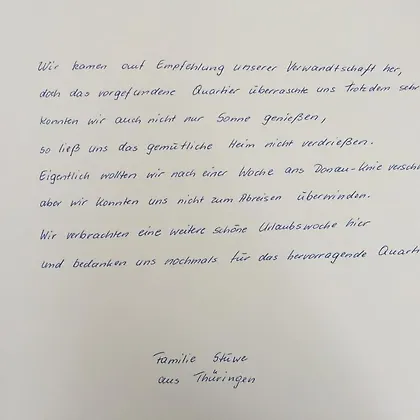 Wir kamen auf Empfehlung unserer Verwandtschaft her,
doch das vorgefundene Quartier überraschte uns trotzdem sehr
konnten wir auch nicht nur Sonne genießen,
so ließ uns das gemütliche Heim nicht verdrießen.
Eigentlich wollten wir nach einer Woche ans Donau-Knie versch
aber wir konnten uns nicht zum Abreisen überwinden.
Wir verbrachten eine weitere schöne Urlaubswoche hier
und bedanken uns nochmals für das hervorragende Quarti
Familie Stüwe
aus Thüringen